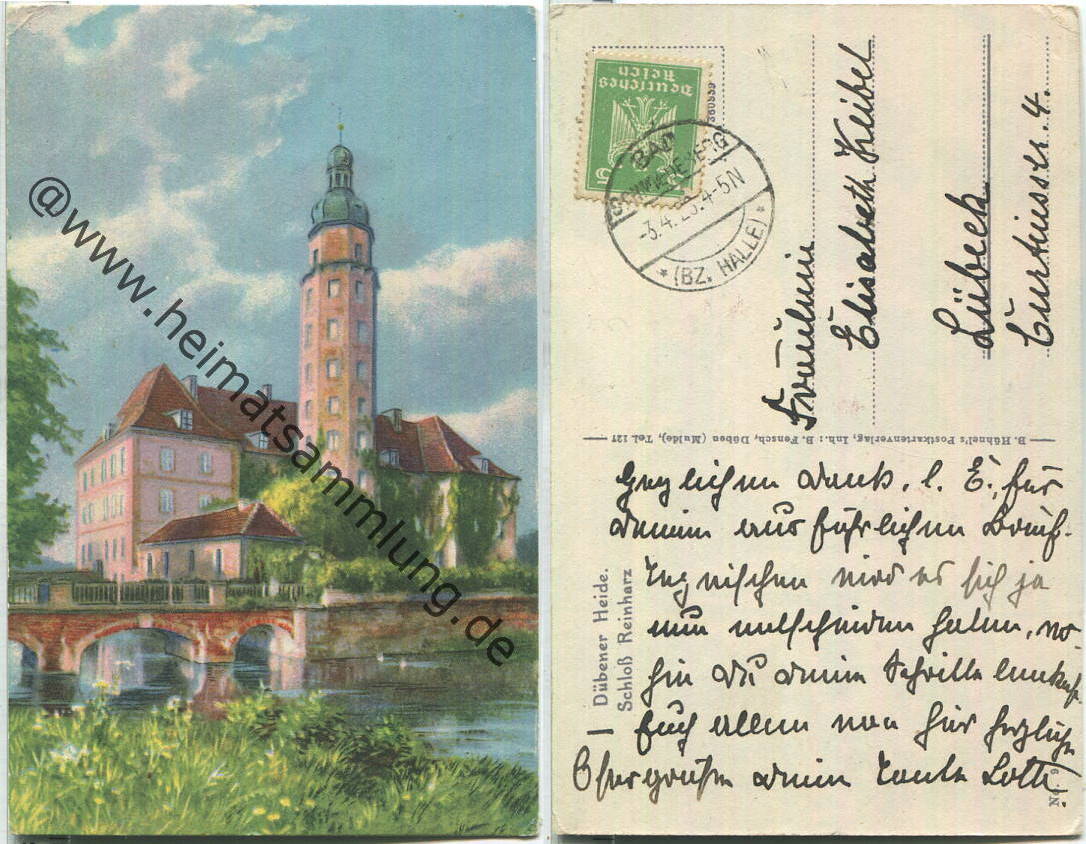 @www.heimatsammlung.de
Deutsches
Reich
5 5
360939
BAD
SCHMIEDEBERG
-3.4.26.4-5N
* (BZ. HALLE) *
Fräulein
Elisabeth Keibel
Lübeck
Curtiusstr. 4.
B. Hühnel's Postkartenverlag, Inh.: B. Pensch, Düben (Mulde), Tel. 127
Dübener Heide.
Schloß Reinharz
Herzlichen Dank, l. E., für
deinen ausführlichen Brief.
Inzwischen wird es sich ja
nun entschieden haben, wo-
hin Du deine Schritte lenkst.
Euch allen von hier herzliche
Ostergrüße deine Tante Lotte.